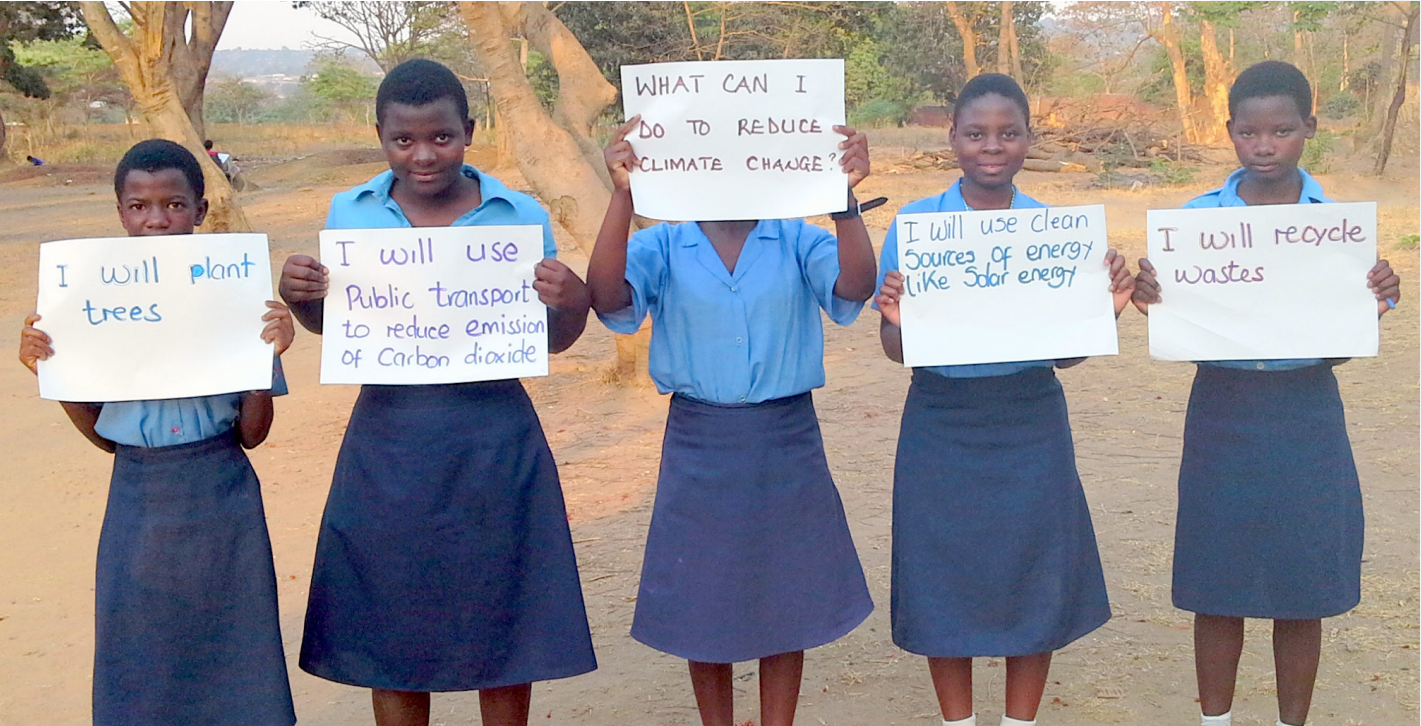 I will plant
trees
I will use
Public transport
to reduce emission
of Carbon dioxide
WHAT CAN I
DO TO REDUCE
CLIMATE CHANGE?
I will use Clean
Sources of energy
like Solar energy
I will recycle
wastes